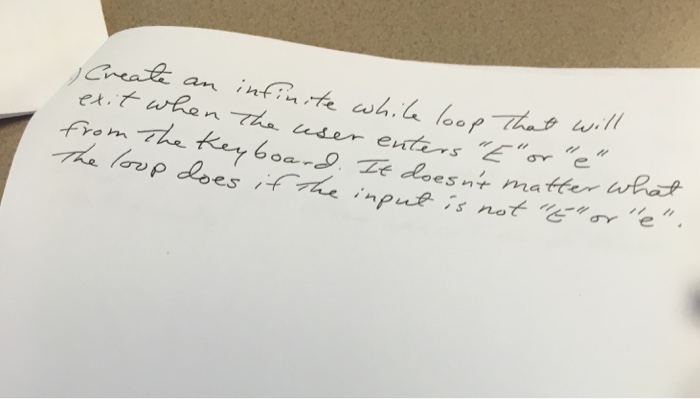 ) Create an infinite while loop that will
exit when the user enters "E" or "e"
from the keyboard. It doesn't matter what
the loop does if the input is not "E" or "e".